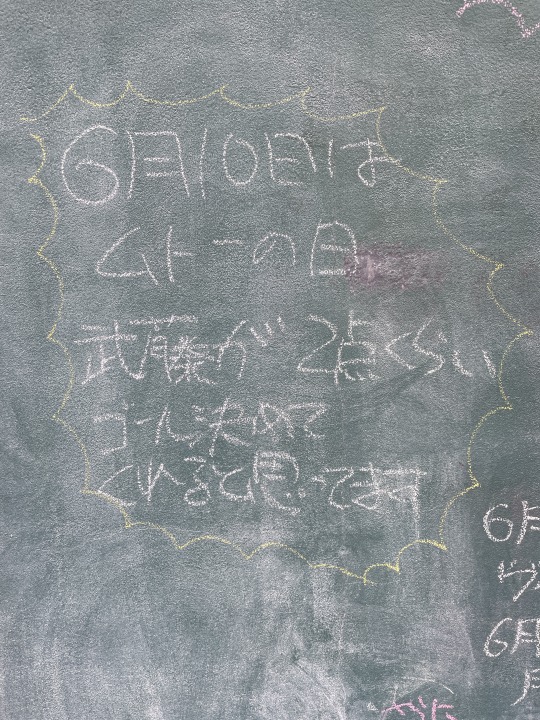 6月10日は
ムトーの日
武藤が2点くらい
ゴール決めて
くれると思ってます
6月
6月